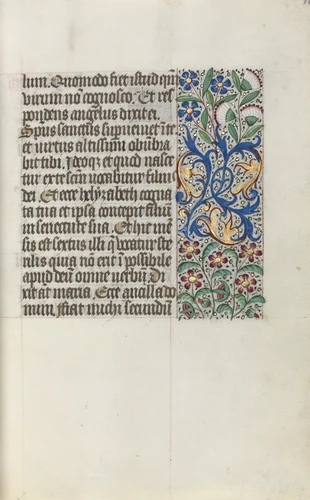 lum. Quomodo fiet istud qm̄
virum nō cognosco. Et res
pondens angelus dixit ei.
Spūs sanctus supueniet ī te
et virtus altissimi obūbra
bit tibi. Ideoq; et quod nasce
tur ex te sanc̄m vocabitur filius
dei. Et ecce helyzabeth cogna
ta tua et ipsa concepit filiū
in senectute sua. Et hic mē
sis est sextus illi q̄ vocatur ste
rilis quia nō erit ī possibile
apud deū omne verbū. Di
xit aūt maria. Ecce ancilla do
mini, fiat michi secundū